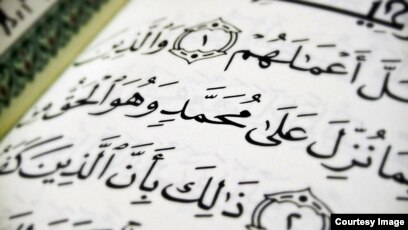 أَعْمَٰلَهُمْ ١ وَالَّذِينَ
بِمَا نُزِّلَ عَلَىٰ مُحَمَّدٍ وَهُوَ الْحَقُّ
٢ ذَٰلِكَ بِأَنَّ الَّذِينَ
Courtesy Image